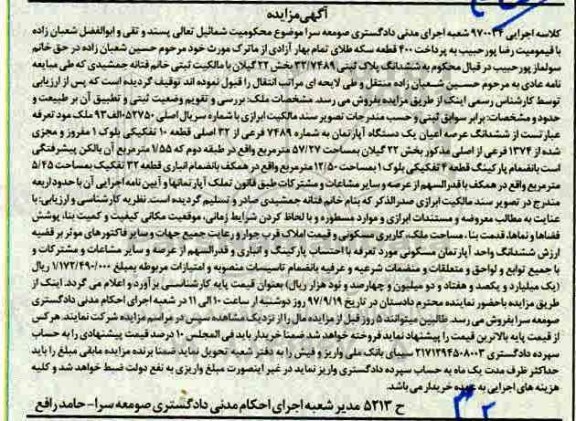 آگهی مزایده
کلاسه اجرایی ۹۷۰۰۳۴ شعبه اجرای مدنی دادگستری صومعه سرا موضوع محکومیت شمائیل تعالی پسند و تقی و ابوالفضل شعبان زاده
با قیمومیت رضا پور حبیب به پرداخت ۴۰۰ قطعه سکه طلای تمام بهار آزادی از ماترک مورث خود مرحوم حسین شعبان زاده در حق خانم
سولماز پور حبیب در قبال محکوم به ششدانگ پلاک ثبتی ۳۲/۷۴۸۹ بخش ۲۲ گیلان با مالکیت ثبتی خانم فتانه جمشیدی که طی مبایعه
نامه عادی به مرحوم حسین شعبان زاده منتقل و طی لایحه ای مراتب انتقال را قبول نموده اند توقیف گردیده است که پس از ارزیابی
توسط کارشناس رسمی اینک از طریق مزایده بفروش می رسد. مشخصات ملک: بررسی و تقویم وضعیت ثبتی و تطبیق آن بر طبیعت و
حدود و مشخصات: برابر سوابق ثبتی و حسب مندرجات تصویر سند مالکیت ابرازی با شماره سریال اصلی ۰۵۲۷۵۰الف۹۳ ملک مود تعرفه
عبارتست از ششدانگ عرصه اعیان یک دستگاه آپارتمان به شماره ۷۴۸۹ فرعی از ۳۲ اصلی قطعه ۱۰ تفکیکی بلوک ۱ مفروز و مجزی
شده از ۱۳۷۴ فرعی از اصلی مذکور بخش ۲۲ گیلان بمساحت ۵۷/۲۷ مترمربع واقع در طبقه دوم که ۱/۵۵ مترمربع آن بالکن پیشرفتگی
است بانضمام پارکینگ قطعه ۴ تفکیکی بلوک ۱ بمساحت ۱۲/۵۰ مترمربع واقع در همکف بانضمام انباری قطعه ۳۲ تفکیک بمساحت ۵/۴۵
مترمربع واقع در همکف با قدرالسهم از عرصه و سایر مشاعات و مشترکات طبق قانون تملک آپارتمانها و آیین نامه اجرایی آن با حدود اربعه
مندرج در تصویر سند مالکیت ابرازی صدرالذکر که بنام خانم فتانه جمشیدی صادر و تسلیم گردیده است. نظریه کارشناسی و ارزیابی: با
عنایت به مطالب معروضه و مستندات ابرازی و موارد مسطوره و با لحاظ کردن شرایط زمانی، موقعیت مکانی کیفیت و کمیت بنا، پوشش
فضاها و نماها، قدمت بنا، مساحت ملک، کاربری مسکونی و قیمت املاک قرب جوار و رعایت جمیع جهات و سایر فاکتورهای موثر بر قضیه
ارزش ششدانگ واحد آپارتمان مسکونی مورد تعرفه با احتساب پارکینگ و انباری و قدرالسهم از عرصه و سایر مشاعات و مشترکات و
با جمیع توابع و لواحق و متعلقات و منضمات شرعیه و عرفیه بانضمام تاسیسات منصوبه و امتیازات مربوطه بمبلغ ۱/۱۷۲/۴۹۰/۰۰۰ ریال
(یک میلیارد و یکصد و هفتاد و دو میلیون و چهارصد و نود هزار ریال) بعنوان قیمت پایه کارشناسی برآورد و اعلام می گردد. اینک از
طریق مزایده باحضور نماینده محترم دادستان در تاریخ ۹۷/۹/۱۹ روز دوشنبه از ساعت ۱۰ الی ۱۱ در شعبه اجرای احکام مدنی دادگستری
صومعه سرا بفروش می رسد. طالبین میتوانند ۵ روز قبل از مزایده مال را از نزدیک مشاهده سپس در مراسم مزایده شرکت نمایند. هر کس
از قیمت پایه بالاترین قیمت را پیشنهاد نماید فروخته خواهد شد ضمنا خریدار باید فی المجلس ۱۰ درصد قیمت پیشنهادی را به حساب
سپرده دادگستری ۲۱۷۱۲۹۴۵۰۸۰۰۳ سیبای بانک ملی واریز و فیش را به دفتر شعبه تحویل نماید ضمنا برنده مزایده مابقی مبلغ را باید
حداکثر ظرف مدت یک ماه به حساب سپرده دادگستری واریز نماید در غیر اینصورت مبلغ واریزی به نفع دولت ضبط خواهد شد و کلیه
هزینه های اجرایی به عهده خریدار می باشد.
ح ۵۲۱۳ مدیر شعبه اجرای احکام مدنی دادگستری صومعه سرا- حامد رافع